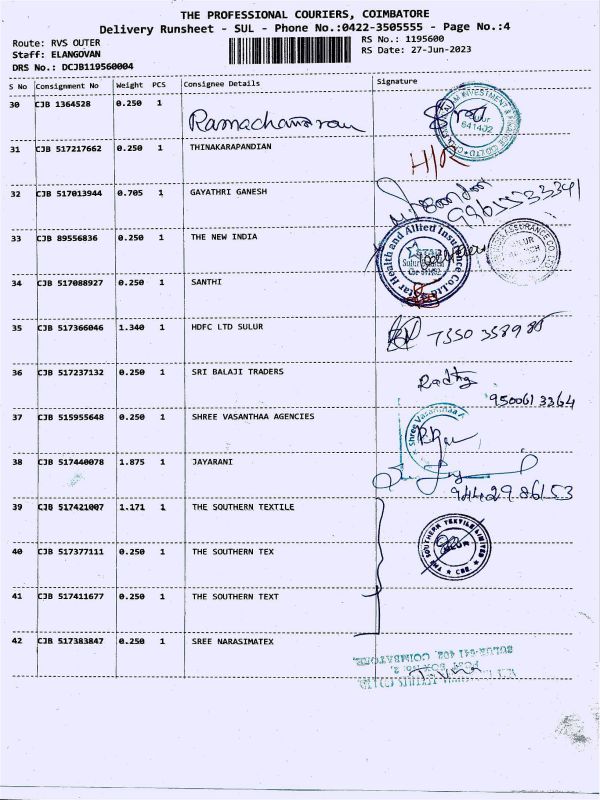 THE PROFESSIONAL COURIERS, COIMBATORE
Delivery Runsheet - SUL - Phone No.:0422-3505555 - Page No.:4
Route: RVS OUTER
RS No.: 1195600
Staff: ELANGOVAN
RS Date: 27-Jun-2023
DRS No.: DCJB119560004
S No Consignment No Weight PCS Consignee Details Signature
30 CJB 1364528 0.250 1 Ramachandran
INVESTMENT &
641402
31 CJB 517217662 0.250 1 THINAKARAPANDIAN
H/R
32 CJB 517013944 0.705 1 GAYATHRI GANESH
33 CJB 89556836 0.250 1 THE NEW INDIA
Star Health and Allied Insurance Co. Ltd
STAR
ASSURANCE CO. LTD
34 CJB 517088927 0.250 1 SANTHI
35 CJB 517366046 1.340 1 HDFC LTD SULUR
7350 358985
36 CJB 517237132 0.250 1 SRI BALAJI TRADERS
9500613364
37 CJB 515955648 0.250 1 SHREE VASANTHAA AGENCIES
Shree Vasanthaa A
38 CJB 517440078 1.875 1 JAYARANI
9442986153
39 CJB 517421007 1.171 1 THE SOUTHERN TEXTILE
THE SOUTHERN TEXTILE LIMITED
CBE.
40 CJB 517377111 0.250 1 THE SOUTHERN TEX
41 CJB 517411677 0.250 1 THE SOUTHERN TEXT
42 CJB 517383847 0.250 1 SREE NARASIMATEX
POST BOX No: 2,
SULUR-641 402, COIMBATORE.